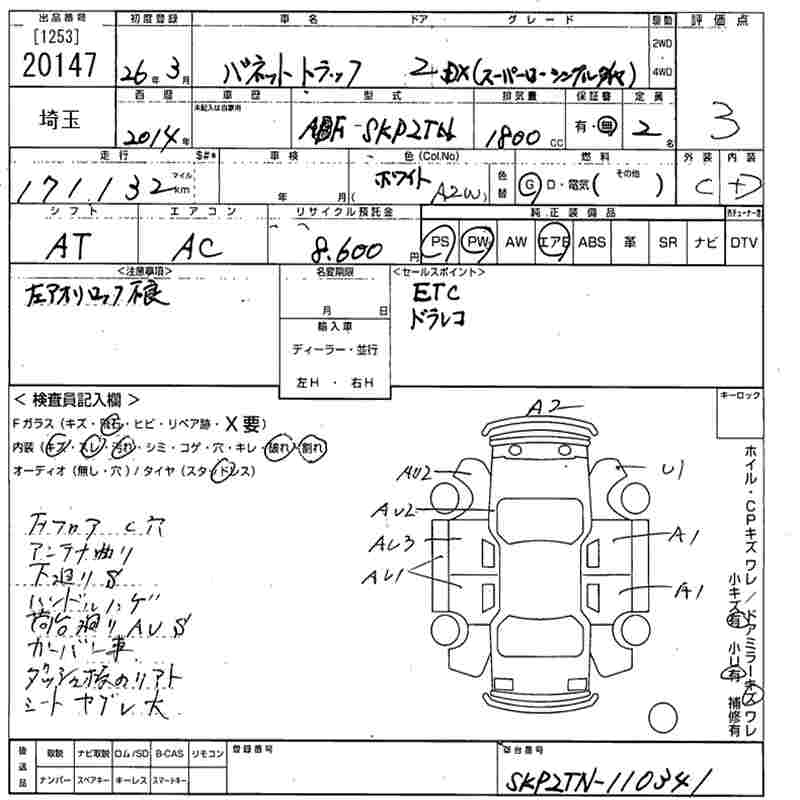 出品番号 初度登録 車名 ドア グレード 駆動 評価点
[1253]
20147 26年3月 バネットトラック 2 DX(スーパーローシングルタイヤ) 2WD・4WD
埼玉 西暦 車歴 型式 排気量 保証書 定員 3
未記入は自家用
2014年 ABF-SKP2TN 1800CC 有・無 2名
走行 S#* 車検 色(Col.No) 燃料 外装 内装
171,132 マイル km 年 月( ホワイト A2W) 色替 G D・電気( その他 ) C D
シフト エアコン リサイクル預託金 純正装備品 地デジチューナー付
AT AC 8,600円 PS PW AW エアB ABS 革 SR ナビ DTV
<注意事項> 名変期限 <セールスポイント>
左アオリロック不良 月 日 ETC
輸入車 ドラレコ
ディーラー・並行
左H・右H
<検査員記入欄> キーロック
Fガラス(キズ・飛石・ヒビ・リペア跡・X要)
内装(キズ・スレ・汚れ・シミ・コゲ・穴・キレ・破れ・割れ)
オーディオ(無し・穴)/タイヤ(スタッドレス)
A2
AU2 U1
AU2
AU3 A1
AU1 A1
フロア C 穴
アンテナ曲り
下廻りS
ハンドルハゲ
荷台廻りAUS
カーバー車
シートヤブレ大
ホイル・CPキズワレ/ドアミラーキズワレ
小キズ有 小U有 補修有
後送品 取説 ナビ取説 ロム/SD B-CAS リモコン 登録番号 車台番号
ナンバー スペアキー キーレス スマートキー SKP2TN-110341